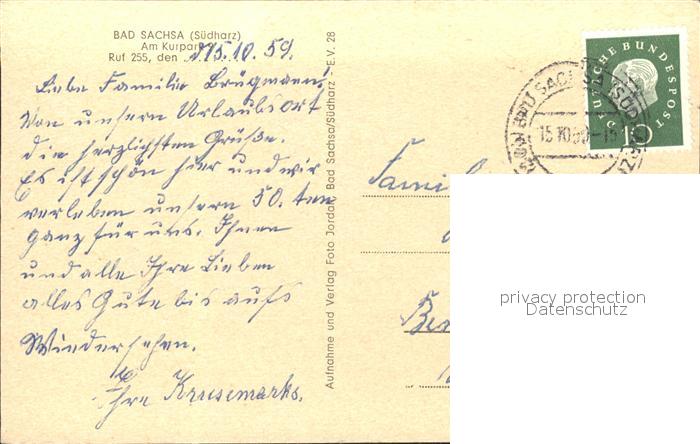 BAD SACHSA (Südharz)
Am Kurpark
Ruf 255, den 15.10.59.
Liebe Familie Brügmann!
Von unserm Urlaubsort
die herzlichsten Grüße.
Es ist schön hier und wir
verleben unsern 50. ten
ganz für uns. Ihnen
und alle Ihre Lieben
alles Gute bis aufs
Wiedersehen.
Ihre Krusemarks.
Aufnahme und Verlag Foto Jordan, Bad Sachsa/Südharz - E.V. 28
DEUTSCHE BUNDESPOST
10
BAD SACHSA (SÜDHARZ)
15.10.59-15
Fami
privacy protection
Datenschutz